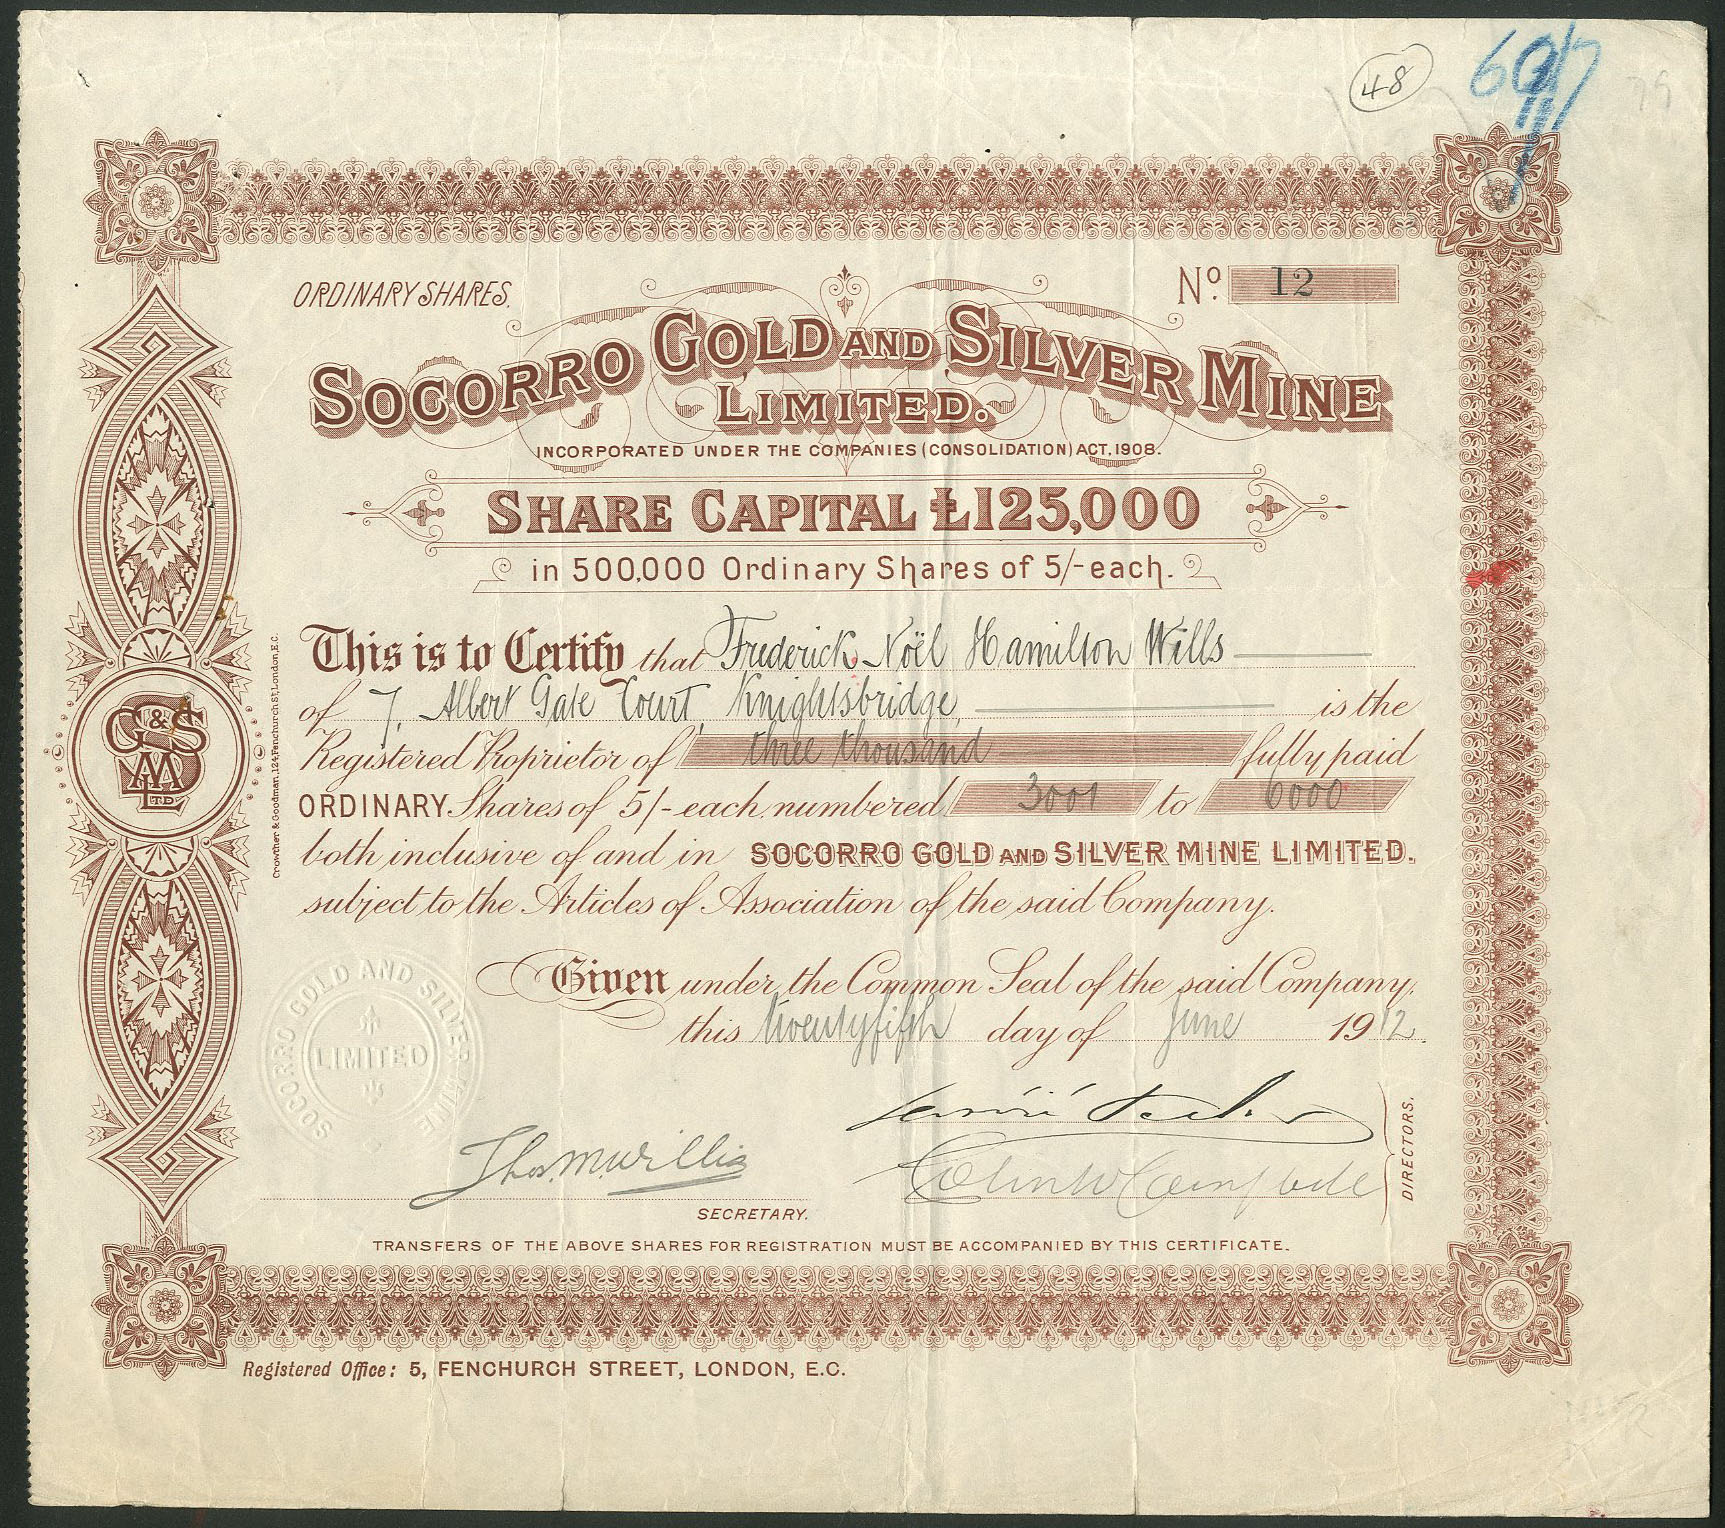 48
ORDINARY SHARES.
No. 12
SOCORRO GOLD AND SILVER MINE
LIMITED.
INCORPORATED UNDER THE COMPANIES (CONSOLIDATION) ACT, 1908.
SHARE CAPITAL £125,000
in 500,000 Ordinary Shares of 5/- each.
This is to Certify that Frederick Noël Hamilton Wills
of 7, Albert Gate Court, Knightsbridge, is the
Registered Proprietor of three thousand fully paid
ORDINARY Shares of 5/- each, numbered 3001 to 6000
both inclusive of and in SOCORRO GOLD AND SILVER MINE LIMITED.
subject to the Articles of Association of the said Company.
Given under the Common Seal of the said Company,
this twentyfifth day of June 1912.
G&S
M
LTD
Crowther & Goodman, 124, Fenchurch St, London, E.C.
SOCORRO GOLD AND SILVER MINE
LIMITED
Thos. M. Willis
SECRETARY.
DIRECTORS.
TRANSFERS OF THE ABOVE SHARES FOR REGISTRATION MUST BE ACCOMPANIED BY THIS CERTIFICATE.
Registered Office: 5, FENCHURCH STREET, LONDON, E.C.